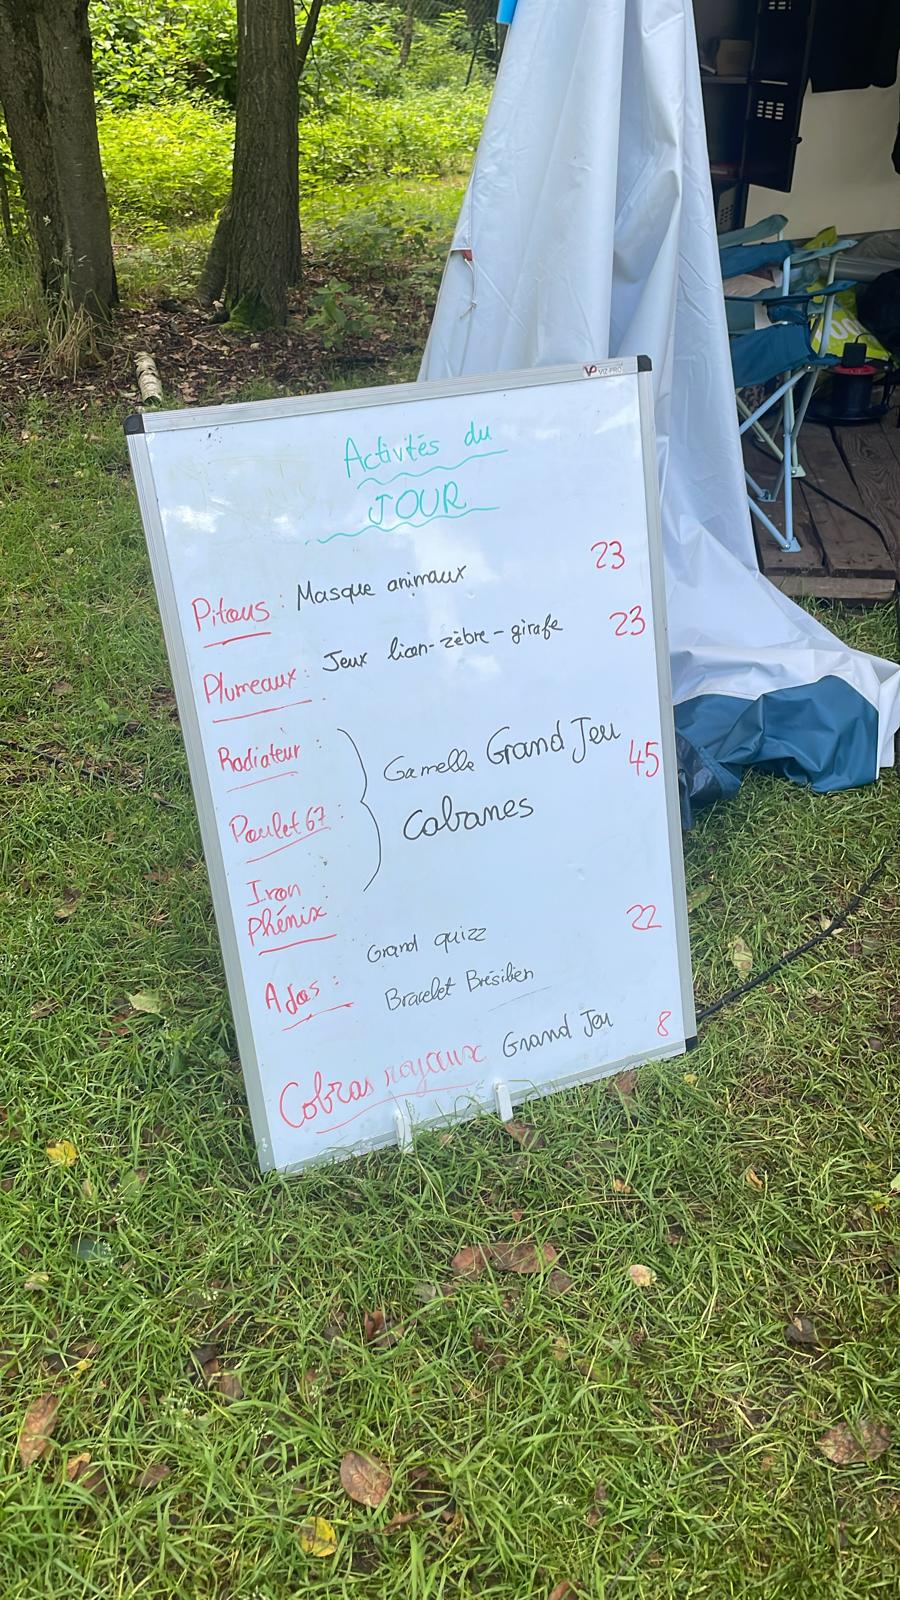 VIZ-PRO
Activités du
JOUR
Pitous : Masque animaux 23
Plumeaux : Jeux lion-zèbre-girafe 23
Radiateur :
Gamelle Grand Jeu 45
Poulet 67 :
Cabanes
Iron
Phénix :
Grand quizz 22
Ados :
Bracelet Brésilien
Cobras royaux Grand Jeu 8